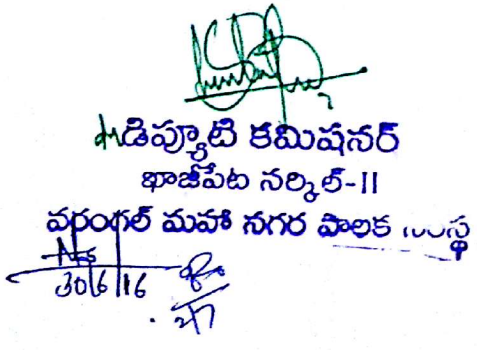 డిప్యూటి కమిషనర్
ఖాజీపేట సర్కిల్-II
వరంగల్ మహా నగర పాలక సంస్థ
30/6/16
2/7